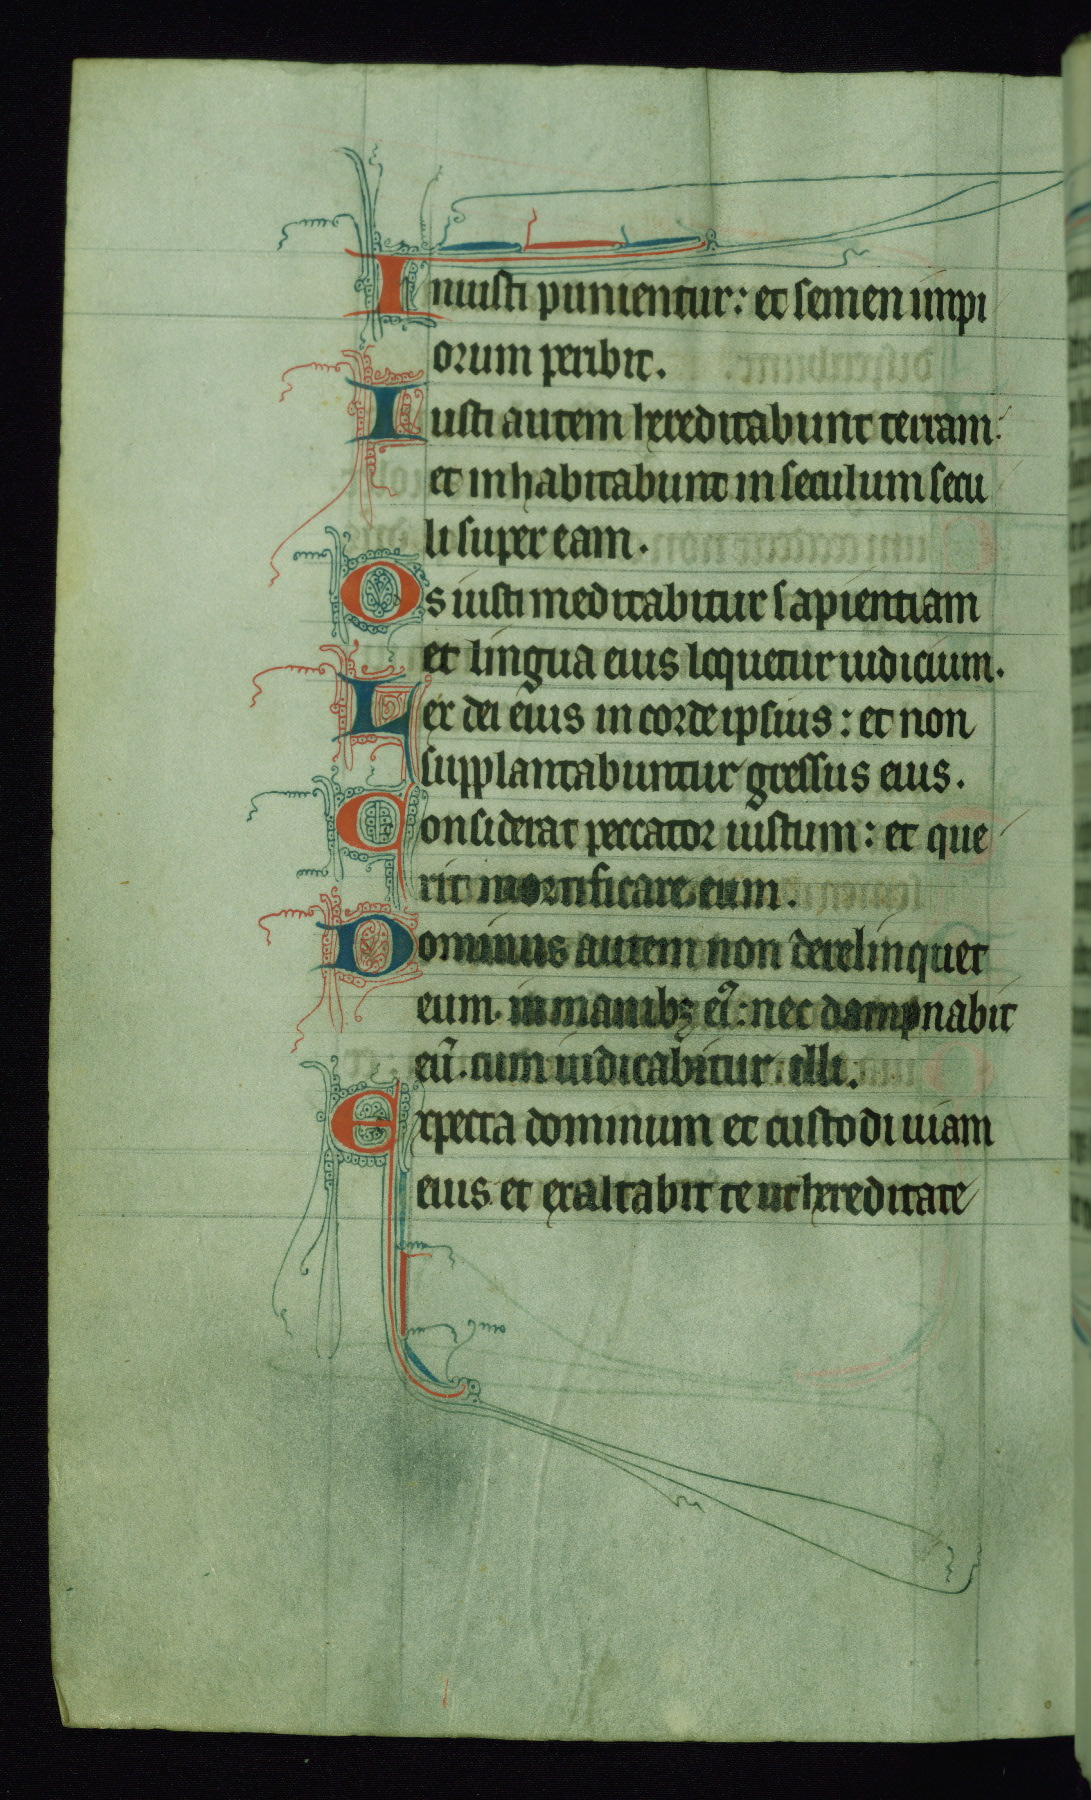 Iniusti punientur: et semen impi
orum peribit.
Iusti autem hereditabunt terram:
et inhabitabunt in seculum secu
li super eam.
Os iusti meditabitur sapientiam
et lingua eius loquetur iudicium.
Lex dei eius in corde ipsius: et non
supplantabuntur gressus eius.
Considerat peccator iustum: et que
rit mortificare eum.
Dominus autem non derelinquet
eum. in manibꝫ eiꝰ: nec dampnabit
eū. cum iudicabitur. illi.
Expecta dominum et custodi uiam
eius et exaltabit te ut hereditate